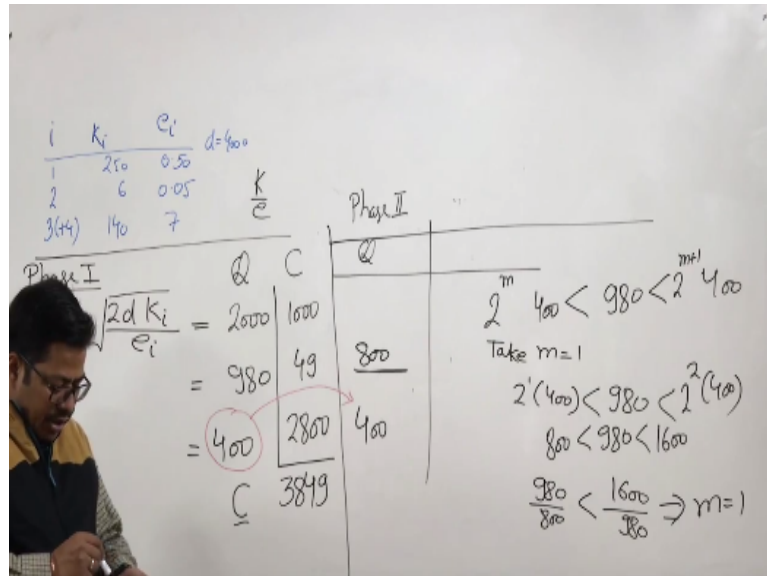 i Ki ei d=4000
1 250 0.50
2 6 0.05
3(+4) 140 7
K/e
Phase I
Q C
√(2d Ki/ei) = 2000 1000
= 980 49
= 400 2800
C 3849
Phase II
Q
800
400
2^m 400 < 980 < 2^(m+1) 400
Take m=1
2^1(400) < 980 < 2^2(400)
800 < 980 < 1600
980/800 < 1600/980 ⇒ m=1